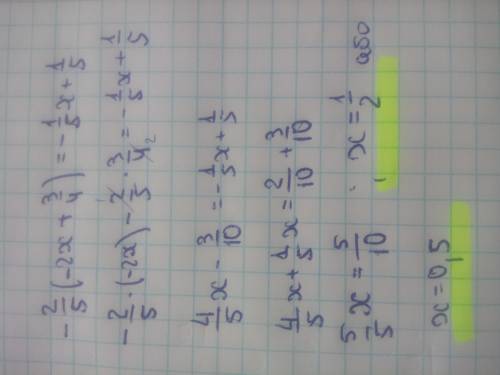 -2/5(-2x + 3/4) = -1/5x + 1/5
-2/5·(-2x) - 2/5·3/4₂ = -1/5x + 1/5
4/5x - 3/10 = -1/5x + 1/5
4/5x + 1/5x = 2/10 + 3/10
5/5x = 5/10 , x = 1/2 або
x = 0,5